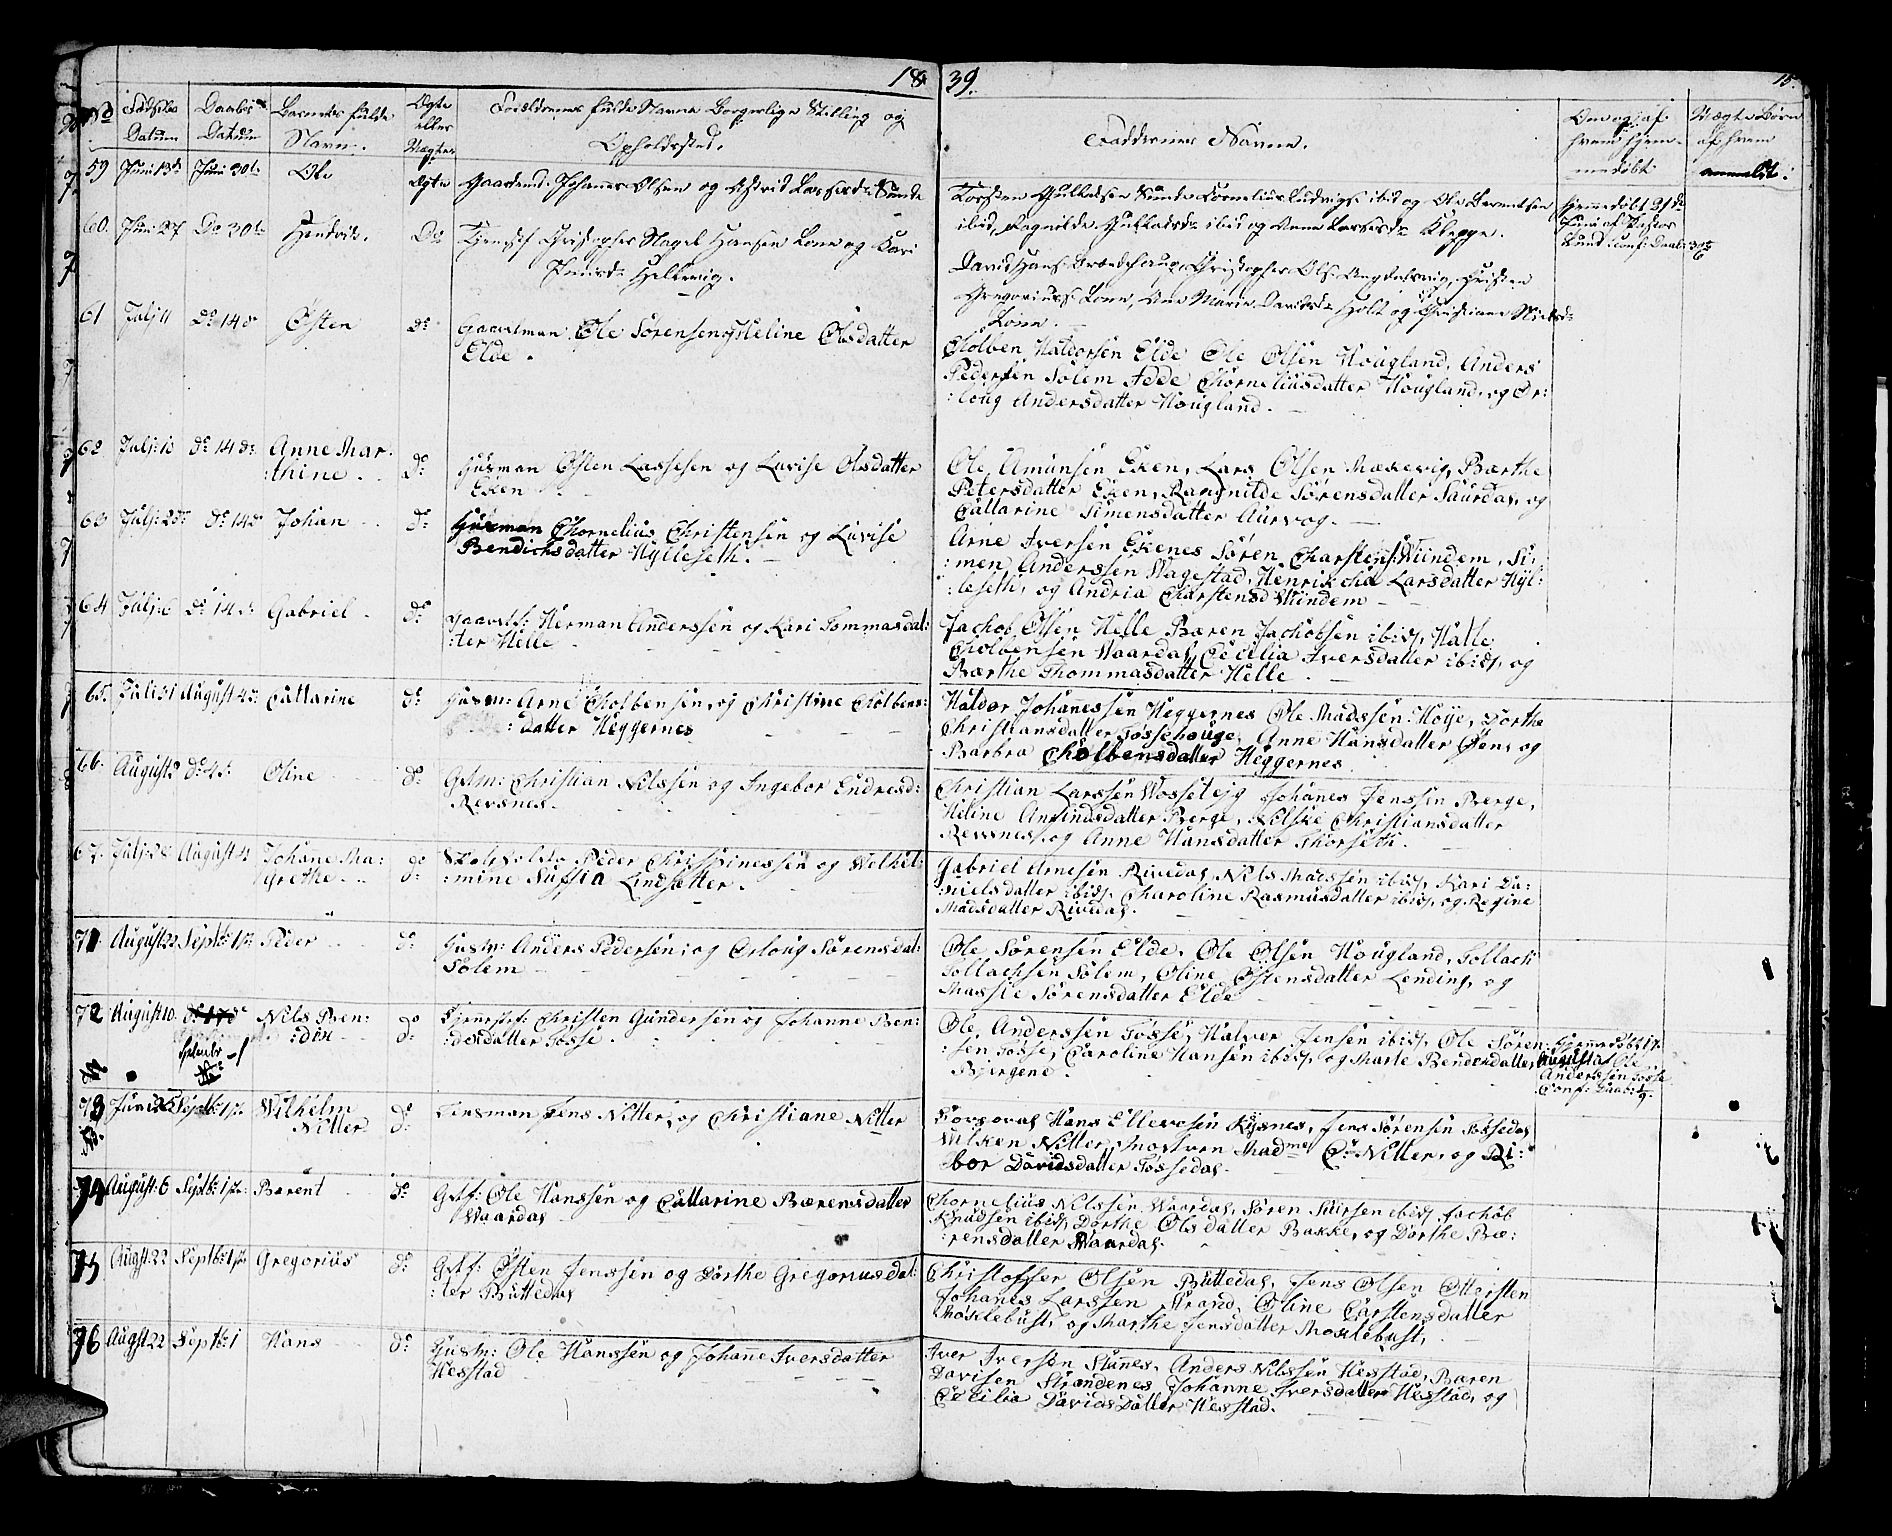 1839.
15.
No
Fødsels Datum
Daabs Datum
Barnets fulde Navn.
Ægte eller Uægte
Forældrenes fulde Navne Borgerlige Stilling og
Opholdsted.
Faddernes Navne.
Om og af hvem hjemmedøbt
Uægte Børn af hvem anmeldt.
59 Juni 13de Juni 30te Ole Ægte Gaardmd. Johannes Olsen og Astrid Lassesd: Sunde
Torsten Sunde Cornelius Ludvigs: ibid og Ole Berentsen
ibid, Ragnilde ibid og Anne Lassesd: Kleppe.
Hjemmedøbt 21de
Juni af Pastor
60. Juni 27 Do 30te Hendrik. Do Tjenestf Christopher Nagel Hansen Lone og Kari
Hellevig.
David Hans: Christopher Ols:
Gregoriuss: Lone, Ane Marie Davidsd: Holt og Christiane Nielsd:
Lone.
61 Julj 11 do 14 do Østen do Gaardman Ole Sørensen og Heline Olsdatter
Elde.
Cholben Haldorsen Elde Ole Olsen Hougland, Anders
Pedersen Solem Adde Chorneliusdatter Hougland, og Or:
:loug Andersdatter Hougland.
62 Julj: 10 do 14 do: Anne Mar
:thine do: Husman Østen Lassesen og Lavise Olsdatter
Eken
Ole Amunsen Eken, Lars Olsen Mækevig, Bærthe
Petersdatter Eken, Rangnilde Sørensdatter Saurdal, og
Cattarine Simensdatter Aurvog.
63 Julj: 2 do 14 do Johan do: Husman Chornelius Christensen og Luvise
Bendichsdatter Hylleseth.
Arne Iversen Ekenes Søren Charstens: Windem, Si:
:men Anderssen Wagestad, Henrikcha Larsdatter Hyl:
:leseth, og Andria Charstensd Windem
64 Julj: 6 do 14 do: Gabriel do: Gaardf: Herman Anderssen og Kari Tommasdat:
:ter Helle
Jachob Olsen Helle Bæren Jachobsen ibid, Halle
Cholbensen Waardal, Cecilia Iversdatter ibid, og
Bærthe Thommasdatter Helle
65. Juli 31 August 4 do: Cattarine do: Husm: Arne Cholbensen, og Christine Cholbens:
:datter Heggernes
Haldor Johanessen Heggernes Ole Madssen Høye, Dorthe
Christiansdatter Tøssehouge, Anne Hansdatter Øen, og
Barbra Cholbensdatter Heggernes
66. August 2 do 4 do: Oline do: Gdm: Christian Nilssen og Ingebor Endresd:
Revsnes.
Christian Larssen Wossetejg Johanes Jenssen Berge,
Heline Amundsdatter Berge, Nilske Christiansdatter
Revsnes, og Anne Hansdatter Thorseth.
67. Julj: August 4 Johane Ma:
:grethe do: Peder Chrispinessen og Welhel:
:mine Suffia Lindsetter.
Gabriel Arnesen Rivedal, Nils Madssen ibid, Kari Da:
:nielsdatter ibid, Charoline Rasmusdatter ibid, og Regine
Madsdatter Rivedal.
71 August 22 Septbr: 1ste Peder do: Husm: Anders Pedersen, og Orloug Sørensdat:
Solem
Ole Sørensen Elde, Ole Olsen Hougland, Tollach
Tollachsen Solem, Oline Østensdatter Lending, og
Massie Sørensdatter Elde
72 August 10. Nils Ben:
:dix do: Tjenestf: Christen Gundersen og Johanne Ben:
:dixdatter Tøsse
Ole Anderssen Tøsse, Halver Jensen ibid, Ole Søren:
:sen Tøsse, Caroline Hansen ibid, og Marte Bendixdatter
Bjergene.
Hjemmedøbt 17.
August af Ole
Anderssen Tøsse
Conf: Daab: 1/9.
73 Juni Septbr: 1ste Wilhelm
Nitter do: Linsman Jens Nitter, og Christiane Nitter
Corporal Hans Ellevesen Rysnes, Jens Sørensen Tøssedal
Wilken Nitter, Madme C: Nitter, og Ri:
:bor Davidsdatter Tøssedal.
74 August: 6 Septbr: 1ste Berent do: Gdf: Ole Hanssen og Cattarine Bærensdatter
Waardal
Chornelius Nilssen Waardal, Søren Siursen ibid, Jachob
Knudsen ibid, Dorthe Olsdatter Bakke, og Dorthe Bæ:
:rensdatter Waardal.
75 Augst: 22 Septbr: 1ste Gregorius do: Gdf: Østen Jenssen og Dorthe Gregoriusdat:
:ter Buttedal
Christoffer Olsen Buttedal, Jens Olsen Ottersten
Johanes Larssen Strand, Oline Carstensdatter
Moklebust, og Marthe Jensdatter Moklebust,
76 Augst 22 Septbr: 1 Hans do: Husm: Ole Hanssen og Johane Iversdatter
Hesstad
Iver Iversen Stunes, Anders Nilssen Hesstad, Bæren
Davisen Strandenes Johanne Iversdatter Hesstad, og
Cecilia Davidsdatter Hesstad.